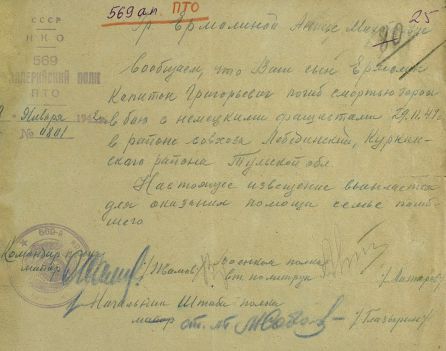 569 ап ПТО
25
СССР
НКО
569
АРТИЛЛЕРИЙСКИЙ ПОЛК
ПТО
Января 194
№ 0801
гр. Ермолиной Анне
Сообщаем, что Ваш сын Ермолин
Капитон Григорьевич погиб смертью героя
в бою с немецкими фашистами 29.11.41г.
в районе совхоза Лебединский, Куркин-
ского района Тульской обл.
Настоящее извещение высылается
для оказания помощи семье погиб-
шего
Командир полка
майор
военком полка
ст. политрук
Начальник Штаба полка
майор